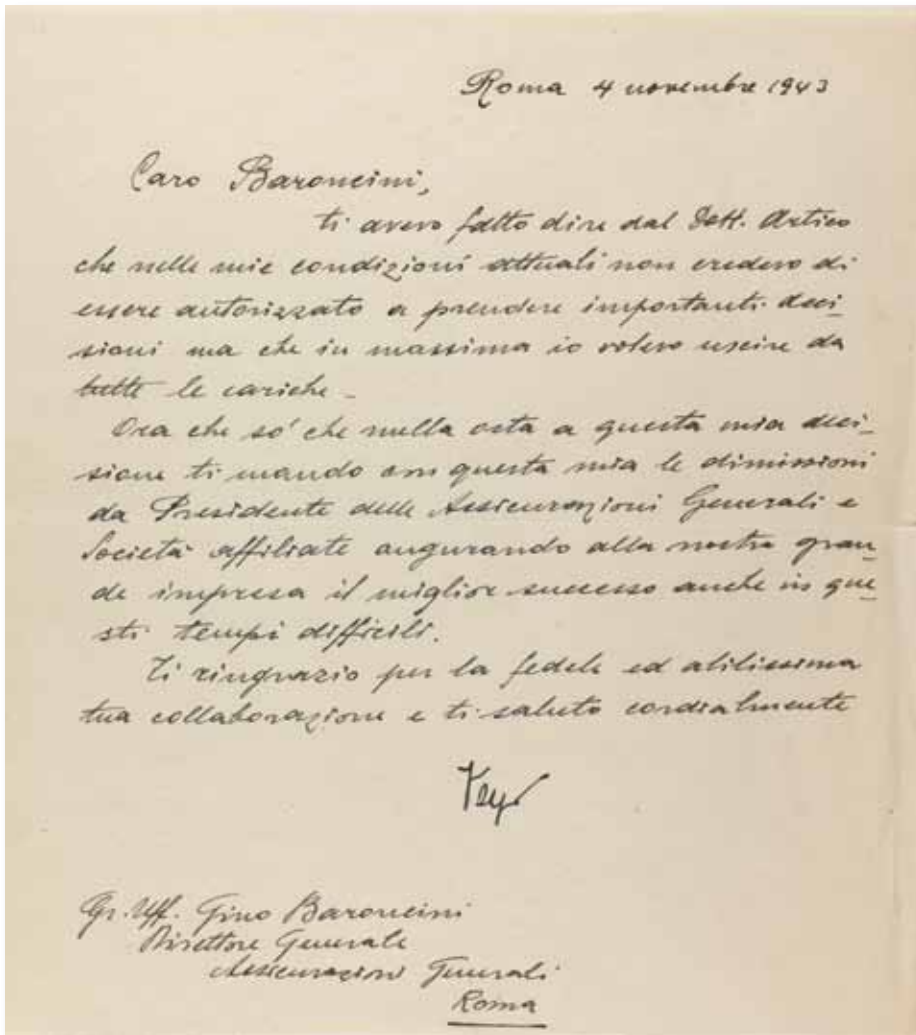 Roma 4 novembre 1943
Caro Baroncini,
ti avevo fatto dire dal Dott. Artico
che nelle mie condizioni attuali non credevo di
essere autorizzato a prendere importanti deci-
sioni ma che in massima io volevo uscire da
tutte le cariche.
Ora che so' che nulla osta a questa mia deci-
sione ti mando con questa mia le dimissioni
da Presidente delle Assicurazioni Generali e
Società affiliate augurando alla nostra gran-
de impresa il miglior successo anche in que-
sti tempi difficili.
Ti ringrazio per la fedele ed abilissima
tua collaborazione e ti saluto cordialmente
Gr. Uff. Gino Baroncini
Direttore Generale
Assicurazioni Generali
Roma